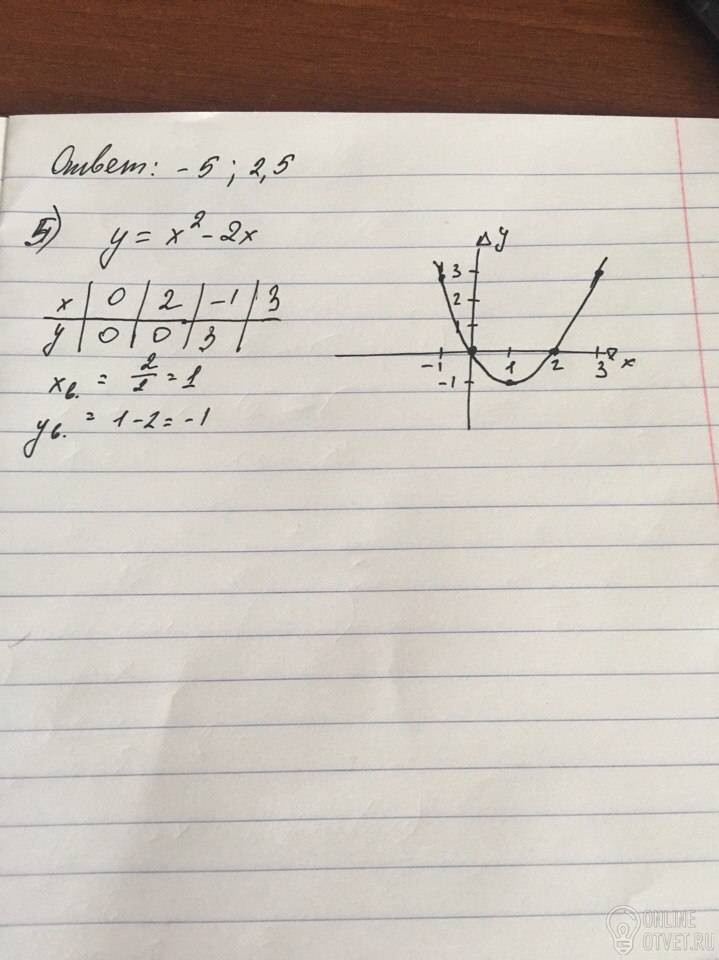 Ответ: -5; 2,5
5) y = x² - 2x
x | 0 | 2 | -1 | 3
y | 0 | 0 | 3 |
xв. = 2/2 = 1
yв. = 1-2 = -1
y
3
2
1
-1 1 2 3 x
-1
ONLINE
OTVET.RU